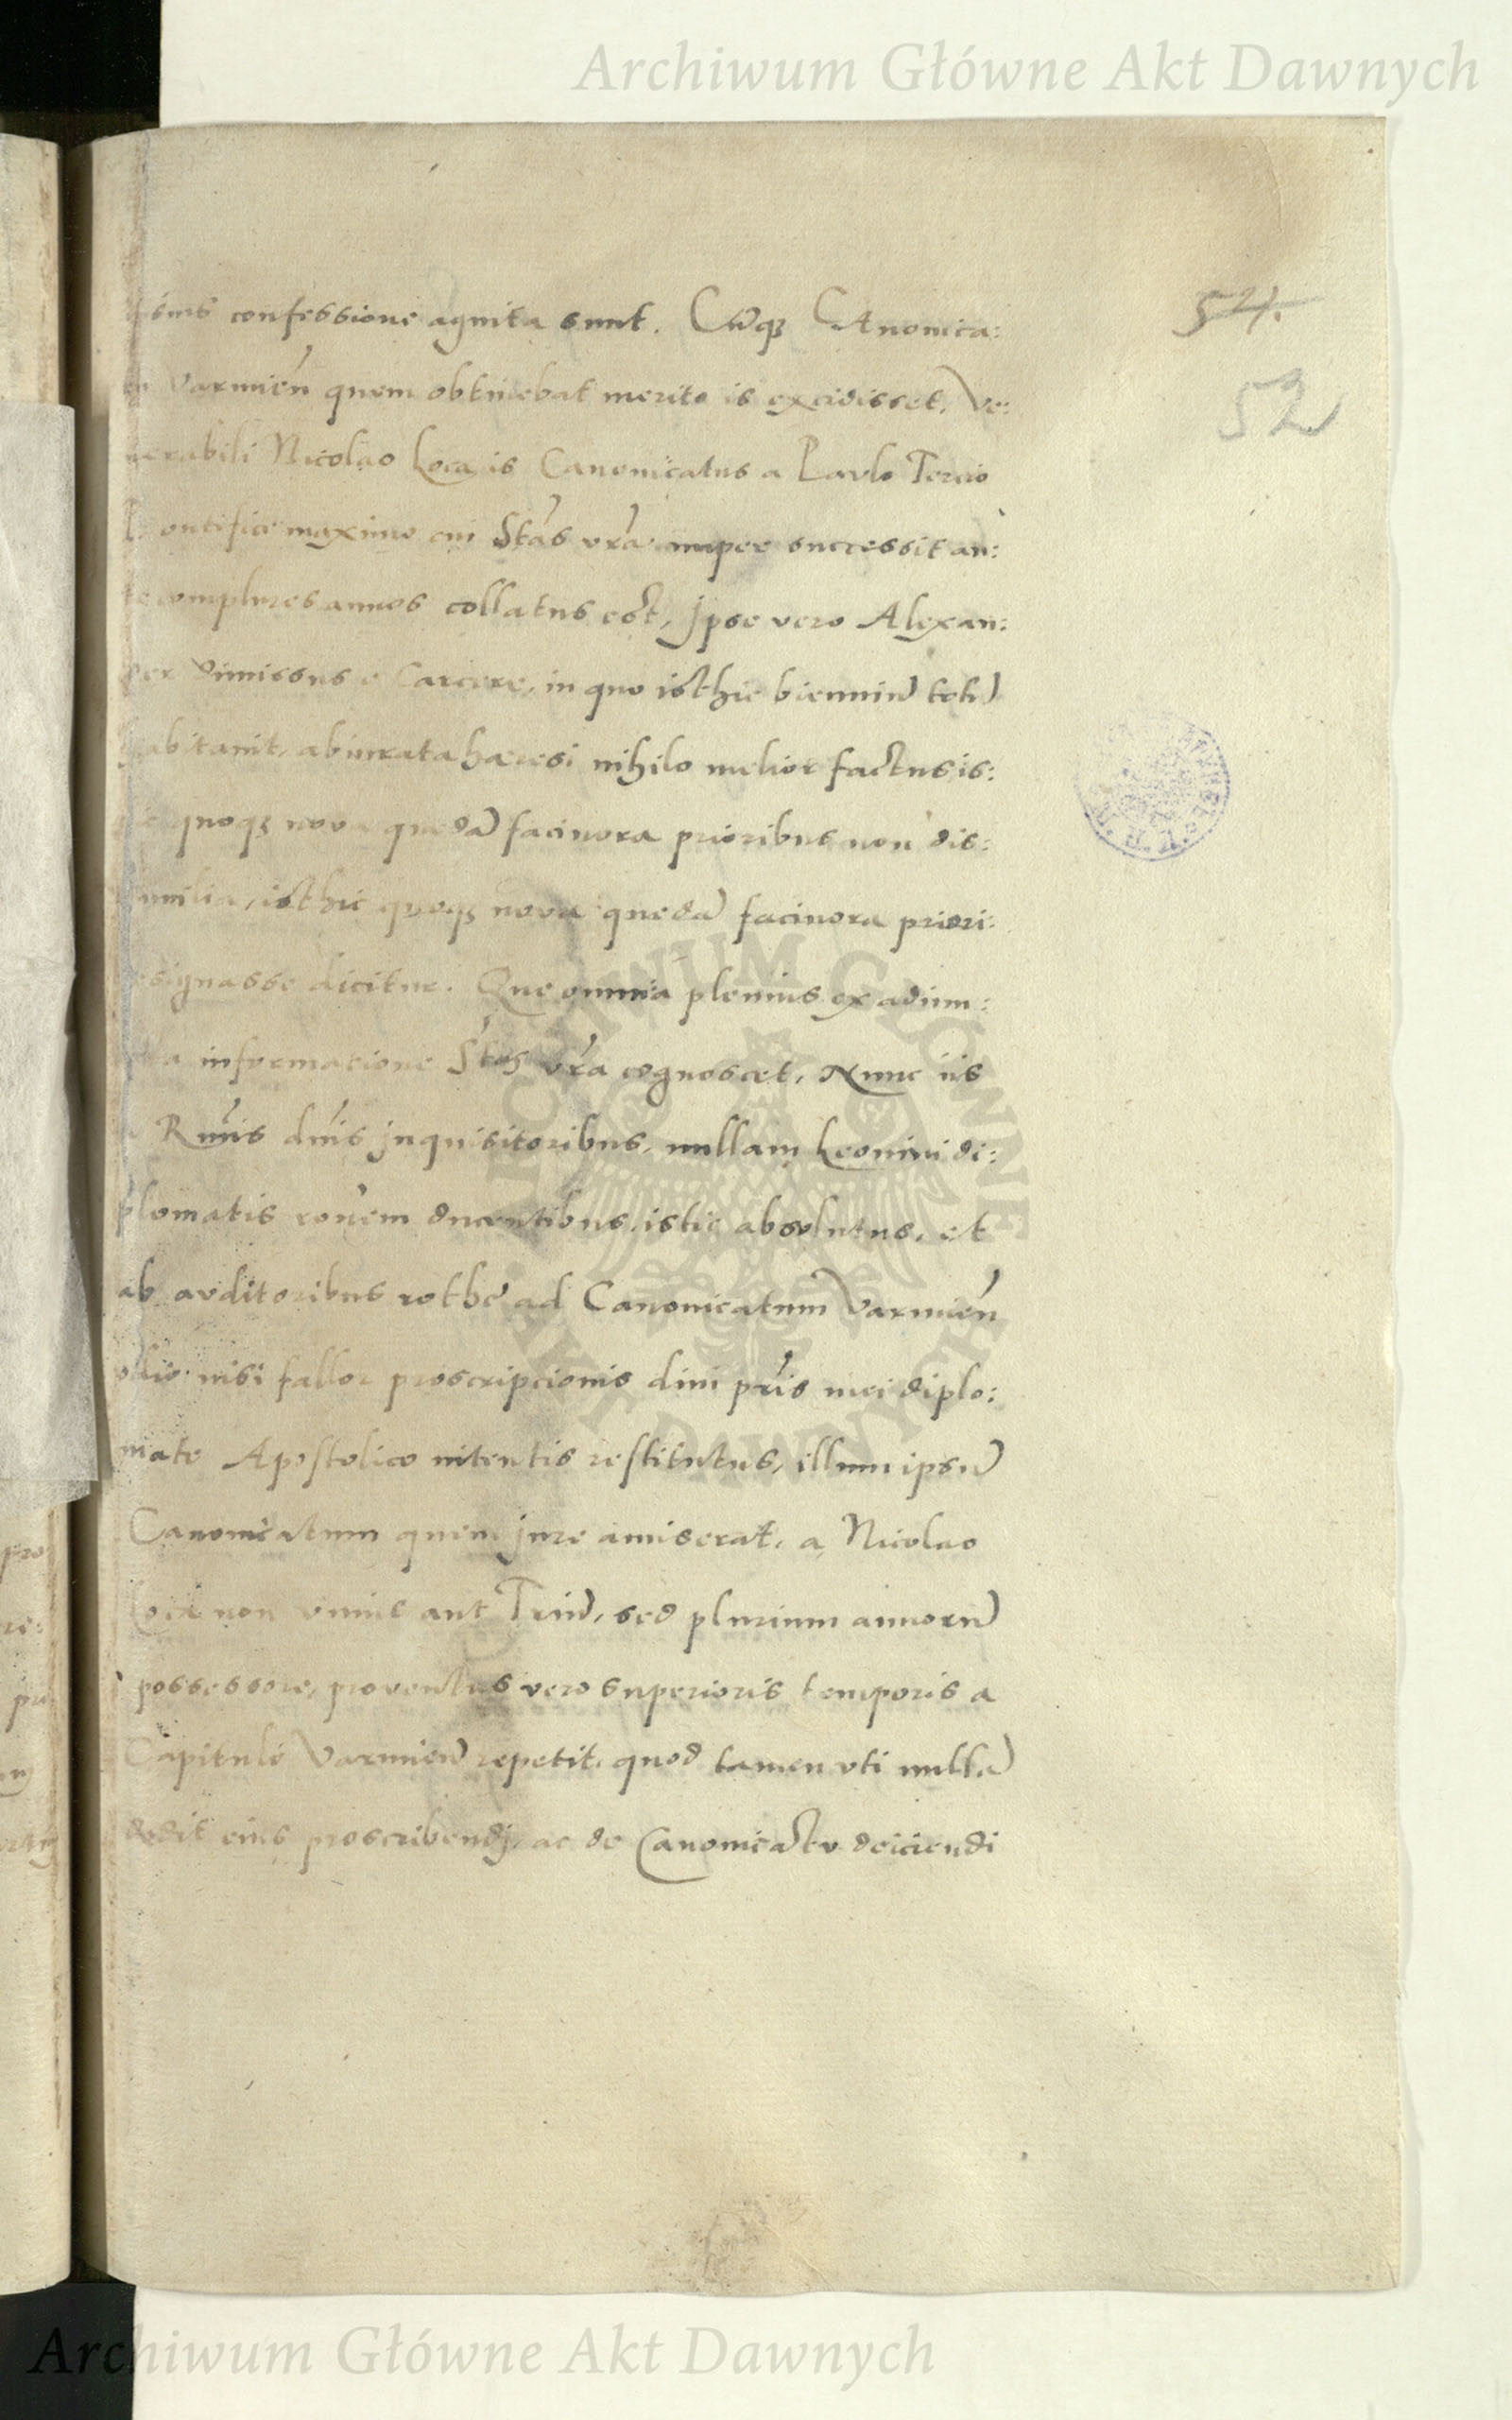 Archiwum Główne Akt Dawnych
confessione agnita sunt. Cūqȝ Canonica:
Varmień quem obtinebat merito is excidisset, Ve:
nerabili Nicolao Loca is Canonicatus a Pavlo Tercio
Pontifice maximo cui Stas vra nuper successit an:
te complures annos collatus est, Jpse vero Alexan:
der dimissus e Carcere, in quo isthic bienniū totū
habitauit, abiurata haeresi nihilo melior factus is:
quoqȝ nova quedā facinora prioribus non dis:
similia, isthic quoqȝ nova quedā facinora priori:
esignasse dicitur. Que omnia plenius ex adium:
ta informatione Stas vra cognoscet, Nunc iis
a Rmis dnis jnquisitoribus, nullam Leonini di:
plomatis ronem ducentibus, istic absolutus, et
ab avditoribus rothe ad Canonicatum Varmień
odio nisi fallor proscripcionis divi pris mei diplo:
mate Apostolico nitentis restitutus, illum ipsū
Canonicatum quem jure amiserat, a Nicolao
Loca non vnius aut Triū, sed plurium annorū
possessore, proventus vero superioris temporis a
Capitulo Varmień repetit, quod tamen vti nullā
dedit eius proscribendj, ac de Canonicatu deiciendi
54.
52
ARCHIWUM GŁÓWNE AKT DAWNYCH
Archiwum Główne Akt Dawnych